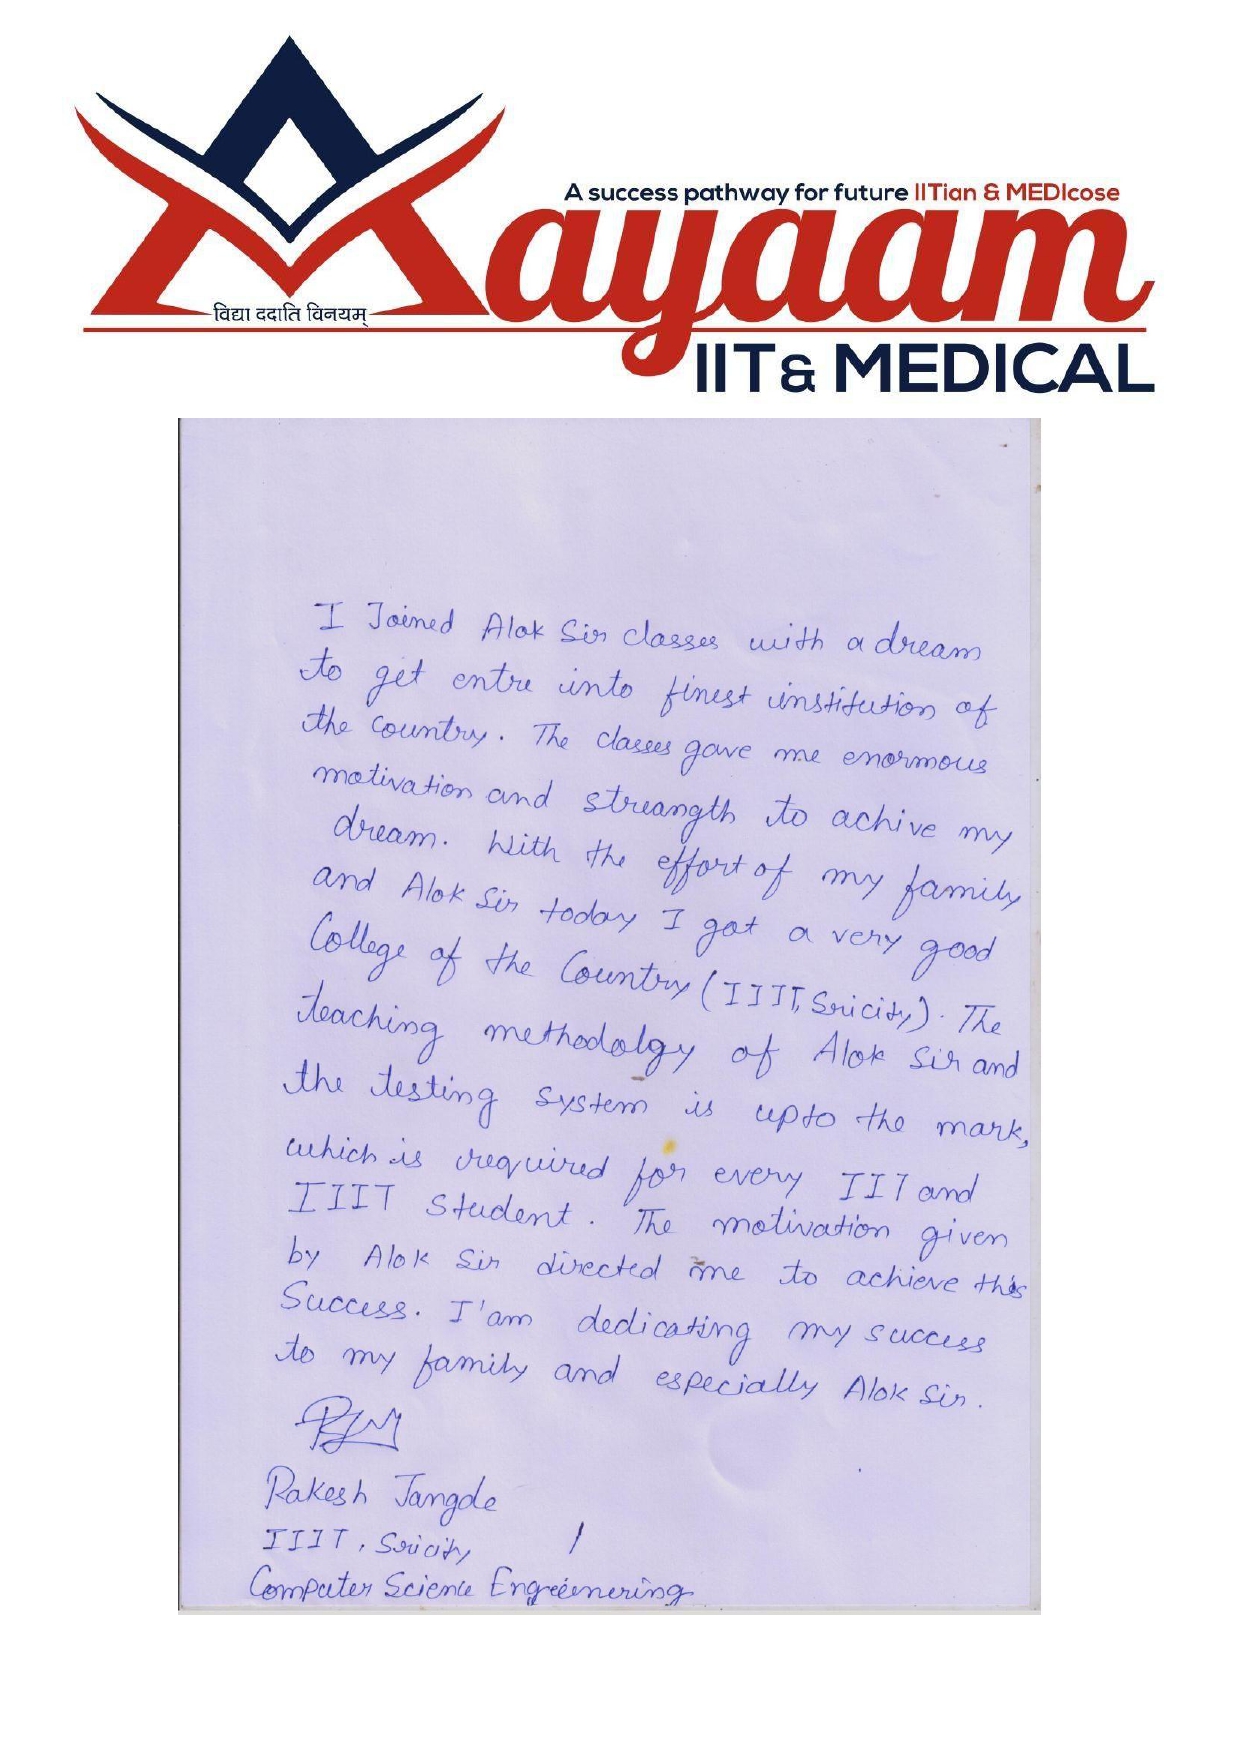 A success pathway for future IITian & MEDIcose
Mayaam
विद्या ददाति विनयम्
IIT & MEDICAL
I Joined Alok Sir classes with a dream
to get entre into finest institution of
the country. The classes gave me enormous
motivation and streangth to achive my
dream. With the effort of my family
and Alok Sir today I got a very good
College of the Country (IIIT, Sricity). The
teaching methodolgy of Alok Sir and
the testing system is upto the mark,
which is required for every IIT and
IIIT Student. The motivation given
by Alok Sir directed me to achieve this
Success. I'am dedicating my success
to my family and especially Alok Sir.
Rakesh Jangde
IIIT, Sricity
Computer Science Engreenering